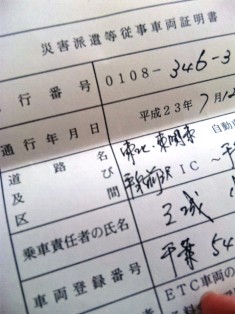 災害派遣等従事車両証明書
行番号 0108-346-3
通行年月日 平成23年7月12
道路名 東北・東関東 自動
及び
区間 IC ～ 千
乗車責任者の氏名 王
車両登録番号 千葉 54
ETC車両の